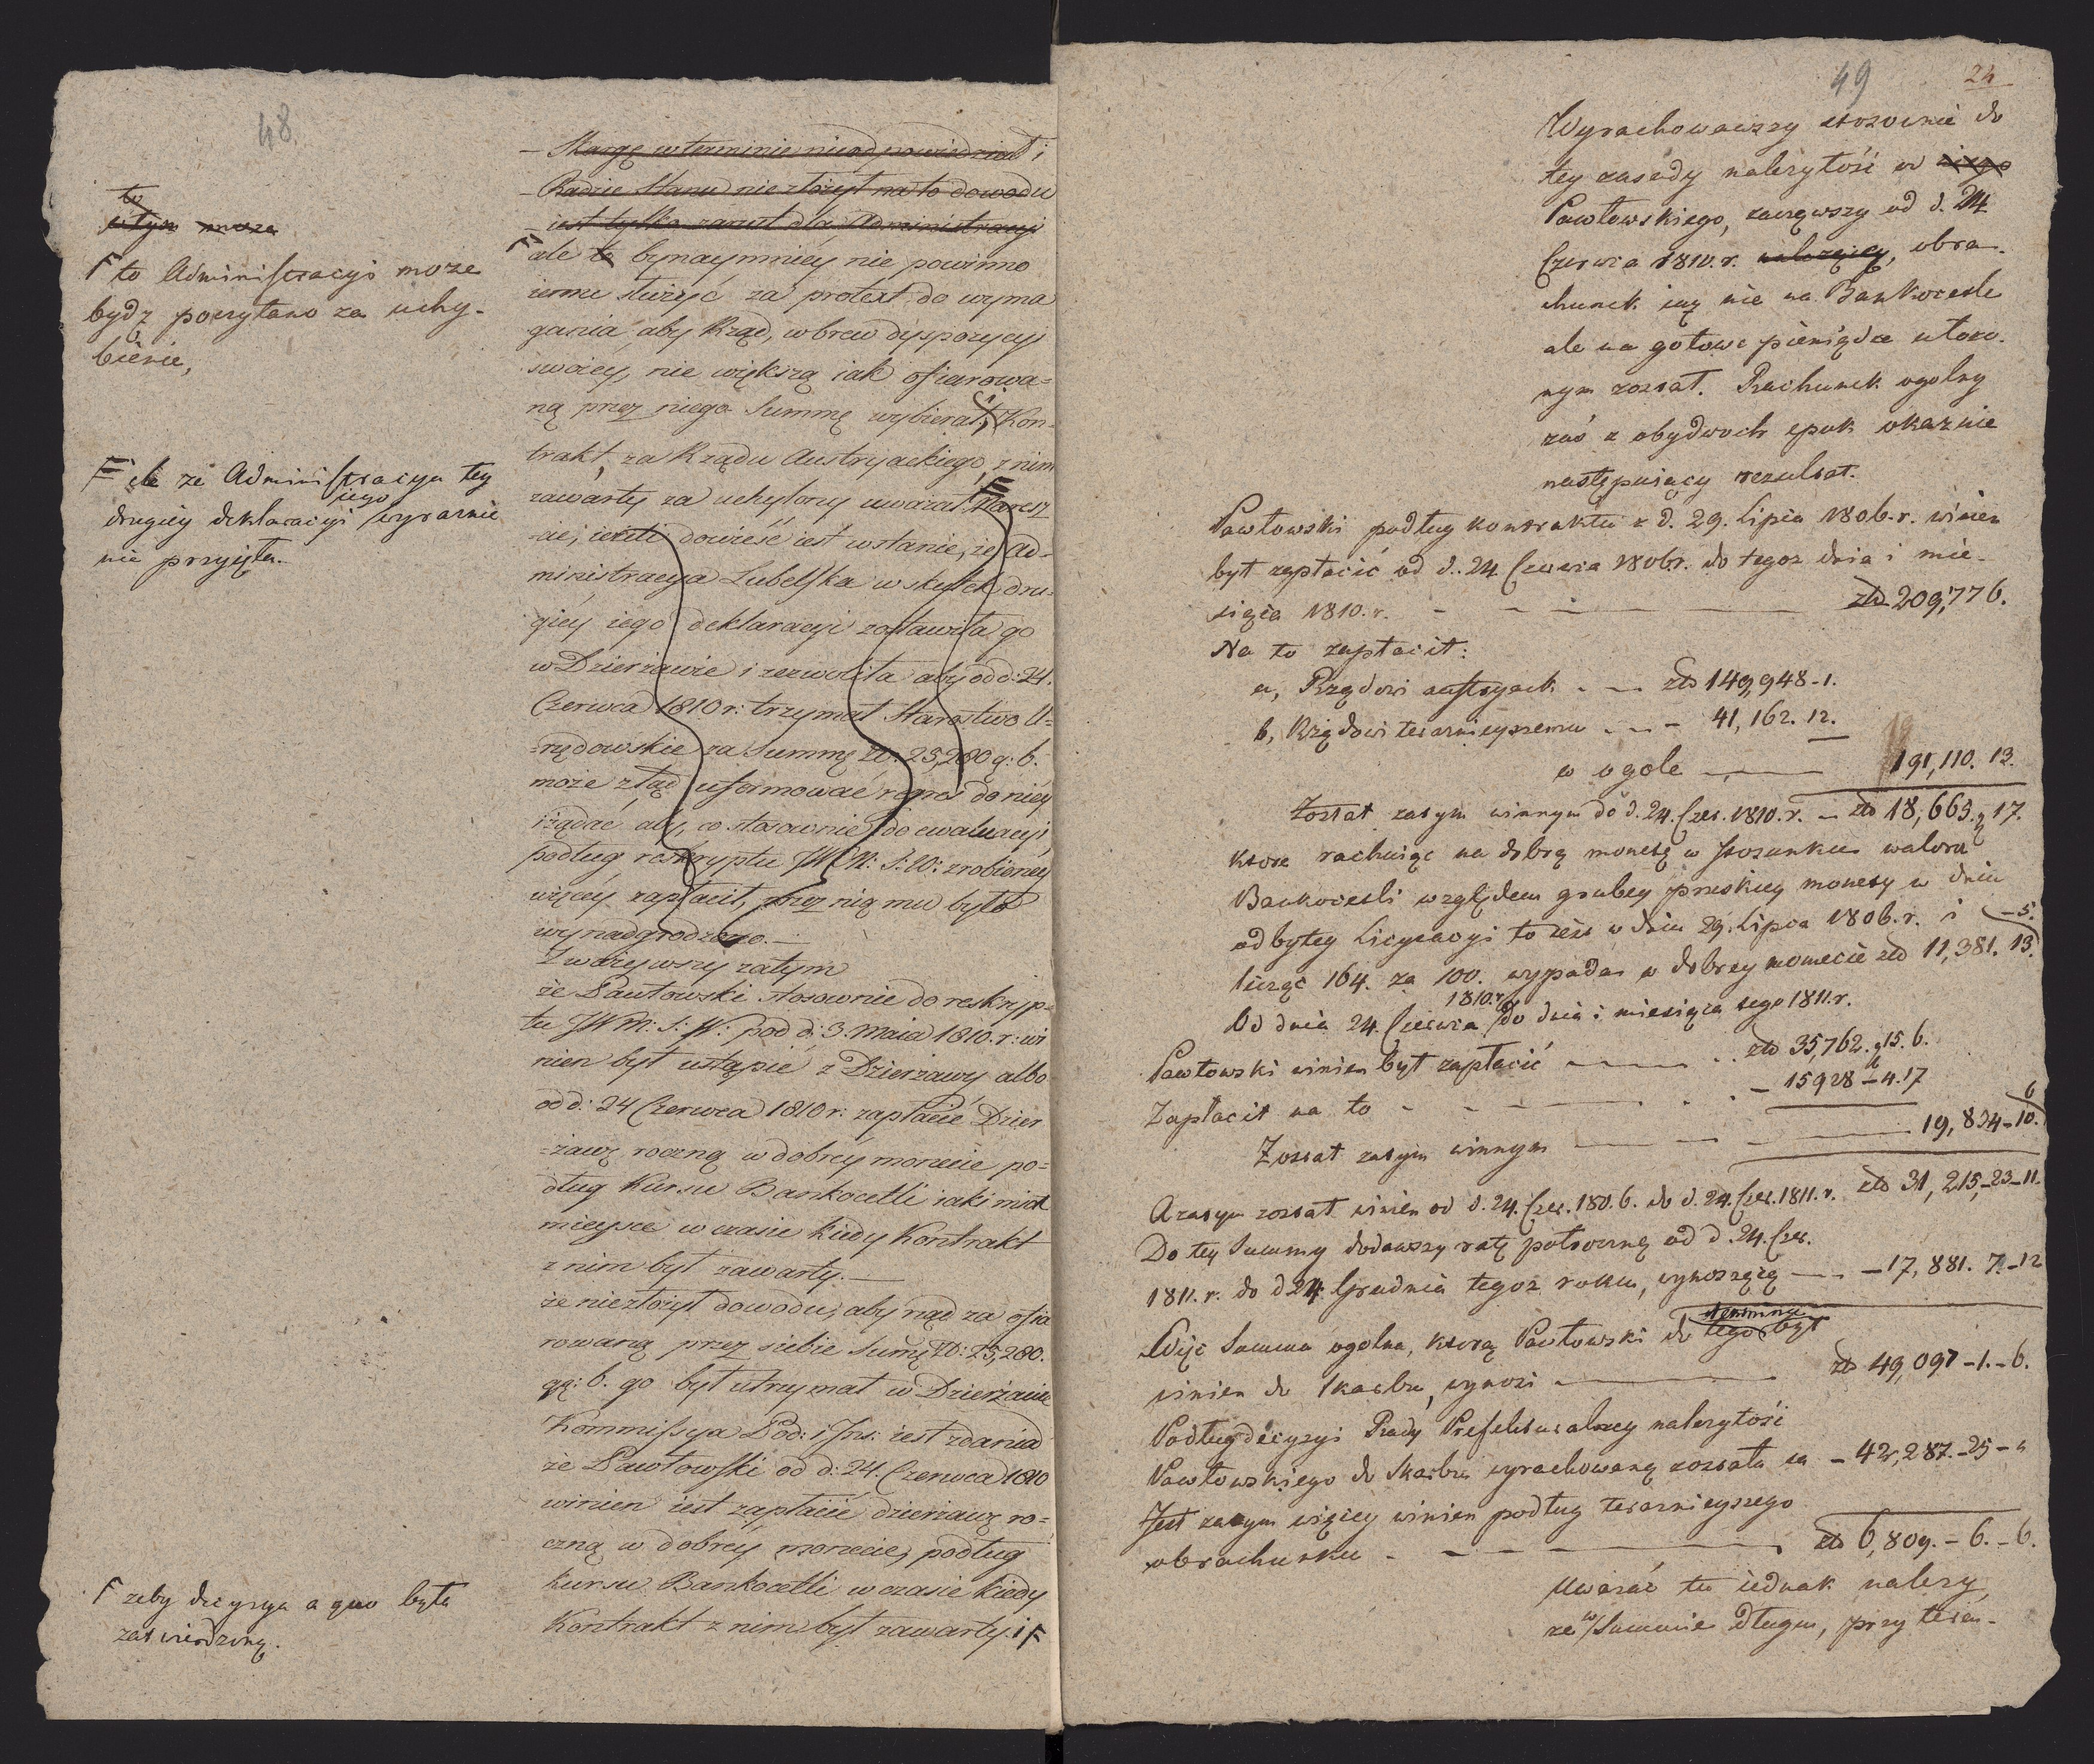 48
to
w tym moze
F to Administracyi moze
bydz poczytano za uchy-
bienie,
F ile ze Administracya tey
drugiey deklaracyi iego wyraznie
nie przyięła.
F zeby decyzya a quo była
zatwierdzoną.
– Skargę w terminie nieodpowiedział i
– Radzie Stanu nie złożył na to dowodu
– iest tylko zarzut dla Administracyi
F ale to bynaymniéy nie powinno
iemu służyć za protext do wyma
gania, aby Rząd, wbrew dyspozycyi
swoiey, nie większą iak ofiarowa=
ną przez niego Summę wybierał, i Kon-
trakt, za Rządu Austryackiego, z nim
zawarty za uchylony uważał. F Nareszcie
cie, ieżeli dowieść iest wstanie, że Ad-
ministracya Lubelska w skutek dru-
giéy iego deklaracyi zostawiła go
w Dzierżawie i zezwoliła aby od d: 24.
Czerwca 1810 r: trzymał Starostwo U-
=rzędowskie za Summę Zł: 25,280 g: 6.
może ztąd uformować regres do niéy
i żądać aby, co stosownie do ewaluacyi,
podług reskryptu JW M: S: W: zrobioney
więcéy zapłacił, przez nią mu było
wynadgrodzono.—
Zważywszy zatym
że Pawłowski stosownie do reskryp-
tu JW M: S: W: pod d: 3. Maia 1810. r: wi
nien był ustąpić z Dzierżawy albo
od d: 24 Czerwca 1810 r: zapłacić Dzier
=żawę roczną w dobréy monecie po=
dług Kursu Bankocetli iaki miał
mieysce w czasie kiedy Kontrakt
z nim był zawarty.—
że niezłożył dowodu, aby rząd za ofia
rowaną przez siebie Sumę Zł: 25,280.
gę: 6. go był utrzymał w Dzierżawie
Kommissya Pod: i Ins: iest zdania
że Pawłowski od d: 24. Czerwca 1810
winien iest zapłacić dzierżawę ro=
czną w dobréy monecie, podług
kursu Bankocetli w czasie kiedy
Kontrakt z nim był zawarty. i F
49 24
Wyrachowawszy stosownie do
tey zasady należytość od niego
Pawłowskiego, zacząwszy od d. 24
Czerwca 1810. r. należącey, obra-
chunek iuż nie na Bankocetle
ale na gotowe pieniądze utwo-
rzonym został. Rachunek ogolny
zaś z obydwoch epok okaznie
następuiący rezultat.
Pawłowski podług kontraktu z d. 29. Lipca 1806. r. winien
był zapłacić od d. 24 Czerwca 1806 r. do tegoż dnia i mie-
siąca 1810. r. – – – zło 209,776.
Na to zapłacił:
a, Rządowi austryack. . – zło 149,948 - 1.
b, Rządowi teraznieyszemu . . – 41,162. 12.
w ogole — 191,110. 13.
Został zatym winnym do d. 24. Czer. 1810. r. – zło 18,665. g 17.
ktore rachuiąc na dobrą monetę w stosunku waloru
Bankocetli względem grubey pruskiey monety w dniu
odbytey Licytacyi to iest w dniu 29. Lipca 1806. r. i
licząc 164. za 100. wypada w dobrey monecie zło 11,381. 13. – 5.
Od dnia 24. Czerwca 1810. r. do dnia i miesiąca tego 1811. r.
Pawłowski winien był zapłacić — . . zło 35,762. g 15. 6.
Zapłacił na to - - – . . – 15928 – 4. 17
Został zatym winnym — — – 19,834 – 10. 6
A zatym został winien od d. 24. Czer. 180.6. do d. 24. Czer. 1811. r. zło 31,215,–23–11.
Do tey Summy dodawszy ratę połroczną od d. 24. Czer.
1811. r. do d 24. Grudnia tegoż roku, wynoszącą — – 17,881. 7.–12
Więc Summa ogolna, ktorą Pawłowski do tego terminu był
winien do Skarbu, wynosi . — zło 49,097 – 1. – 6.
Podług decyzyi Rady Prefekturalney należytość
Pawłowskiego do Skarbu wyrachowaną została na – 42,287. – 25 – "
Jest zatym więcey winien podług teraznieyszego
obrachunku - – — . zło 6,809. – 6. – 6.
Uważać tu iednak należy,
że w Summie długu, przy teraz-